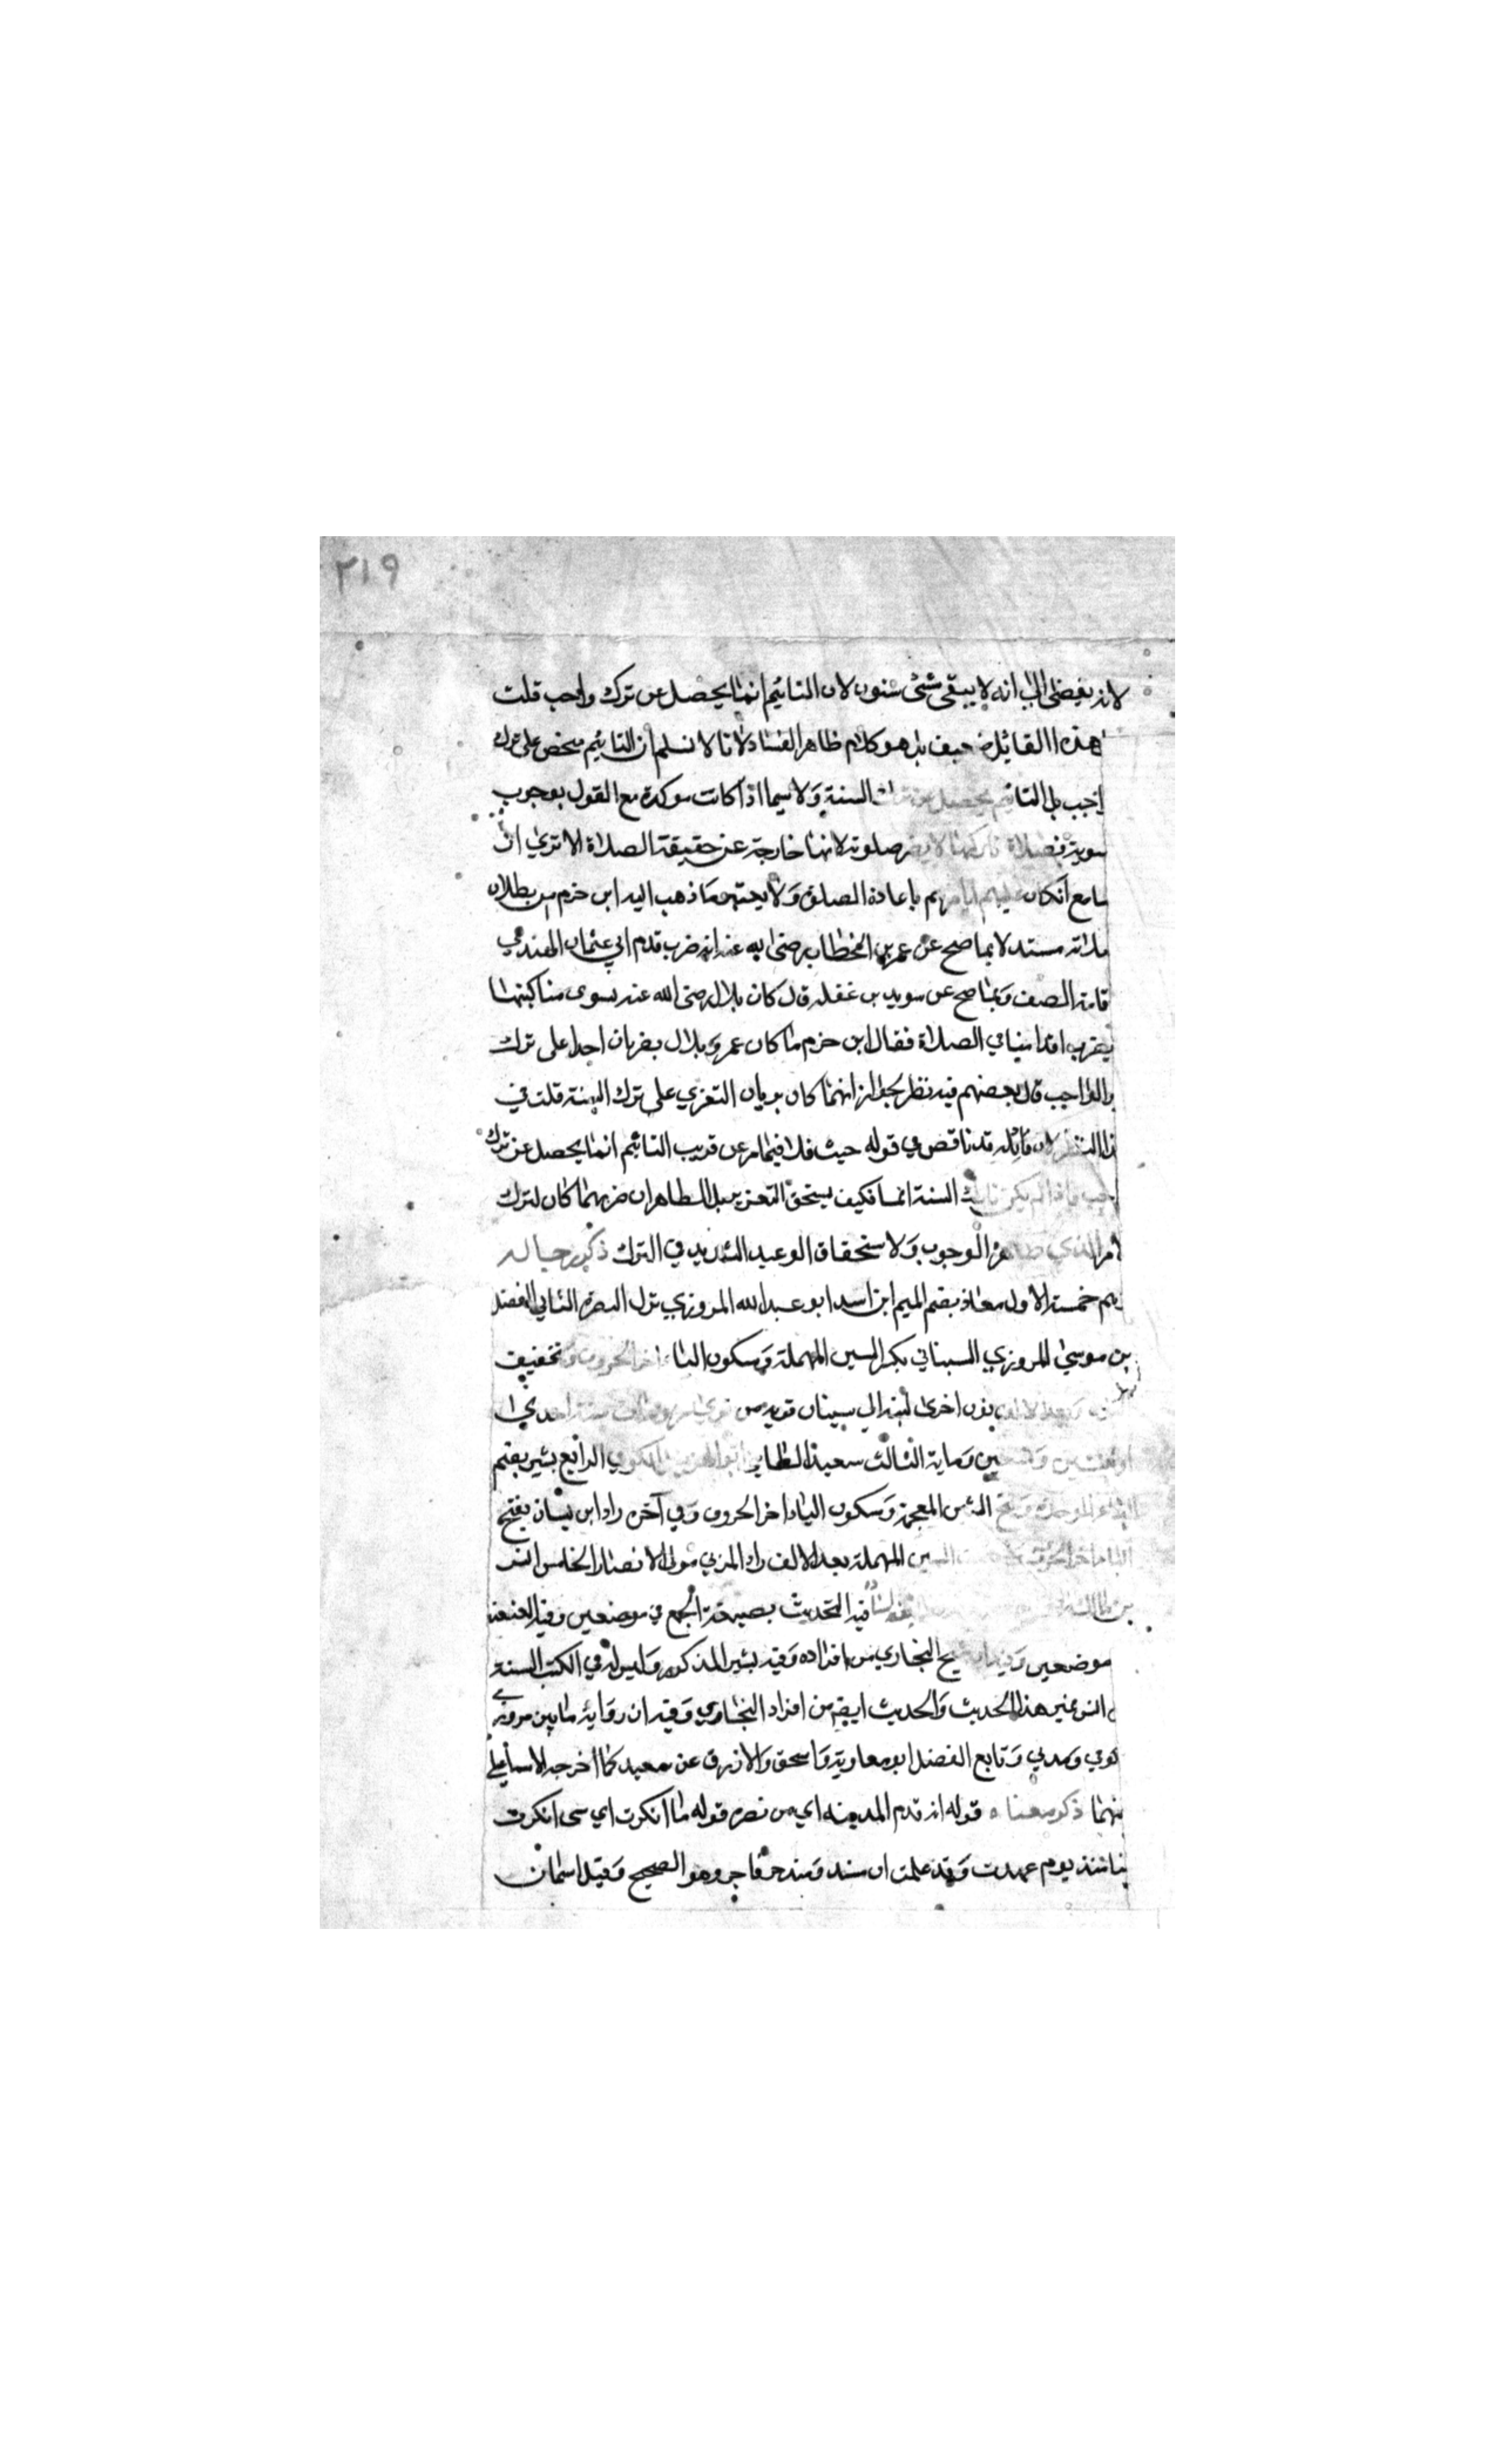 ٢١٩
لانه يفضي الى انه لا يبقى شئ مسنون لان التاثيم انما يحصل عن ترك واجب قلت
هذا القائل ضعيف بل هو كلام ظاهر الفساد لانا لا نسلم ان التاثيم منحصر على ترك
اجب بل التاثيم يحصل عن ترك السنة ولا سيما اذا كانت موكدة مع القول بوجوب
سوية فصلاة تاركها لا يضر صلوته لانها خارجة عن حقيقة الصلاة الا ترى ان
سا مع انكاره عليهم لم يامرهم باعادة الصلوة ولا يعتبر ما ذهب اليه ابن حزم من بطلان
صلاته مستدلا بما صح عن عمر بن الخطاب رضى الله عنه انه ضرب قدم ابي عثمان الهندي
قامة الصف وبما صح عن سويد بن غفله قال كان بلال رضى الله عنه يسوى مناكبنا
يضرب اقدامنا في الصلاة فقال ابن حزم ما كان عمر وبلال يضربان احدا على ترك
والواجب قال بعضهم فيه نظر لجواز انهما كان يريان التعزير على ترك السنة قلت في
ذا النظر لان قائله قد ناقض في قوله حيث قال فيما مر عن قريب التاثيم انما يحصل عن ترك
جب فاذا لم يكن تارك السنة اثما فكيف يستحق التعزير بل الظاهر ان ضربهما كان لترك
امر الذي ظاهره الوجوب ولاستحقاق الوعيد الشديد في الترك ذكر رجاله
هم خمسة الاول معاذ بضم الميم ابن اسد ابو عبد الله المروزي نزل البصرة الثاني الفضل
بن موسى المروزي السيناني بكسر السين المهملة وسكون اليا اخر الحروف وتخفيف
النون وبعد الالف نون اخرى نسبة الى سينان قرية من قرى مرو مات سنة احدى ا
او اثنتين وتسعين وماية الثالث سعيد الطائي ابو الهزيل الكوفي الرابع بشير بضم
الباء الموحدة وفتح الشين المعجمة وسكون الياء اخر الحروف وفي آخره راء ابن يسار بفتح
الياء اخر الحروف السين المهملة بعد الالف راء المزني مولى الانصار الخامس انس
بن مالك فيه التحديث بصيغة الجمع في موضعين وفيه العنعنة
موضعين وفيه ان شيخ البخاري من افراده وفيه بشير المذكور وليس له في الكتب السنة
انس غير هذا الحديث والحديث ايضا من افراد البخاري وفيه ان رواته ما بين مروزي
كوفي ومدني وتابع الفضل ابو معاوية واسحق والازرق عن سعيد كما اخرجه الاسماعيلي
نهما ذكر معناه قوله انه قدم المدينه اي من بصرة قوله ما انكرت اي شى انكرت
منا منذ يوم عهدت وقد علمت ان منذ ومذ حرفا جر وهو الصحيح وقيل اسمان